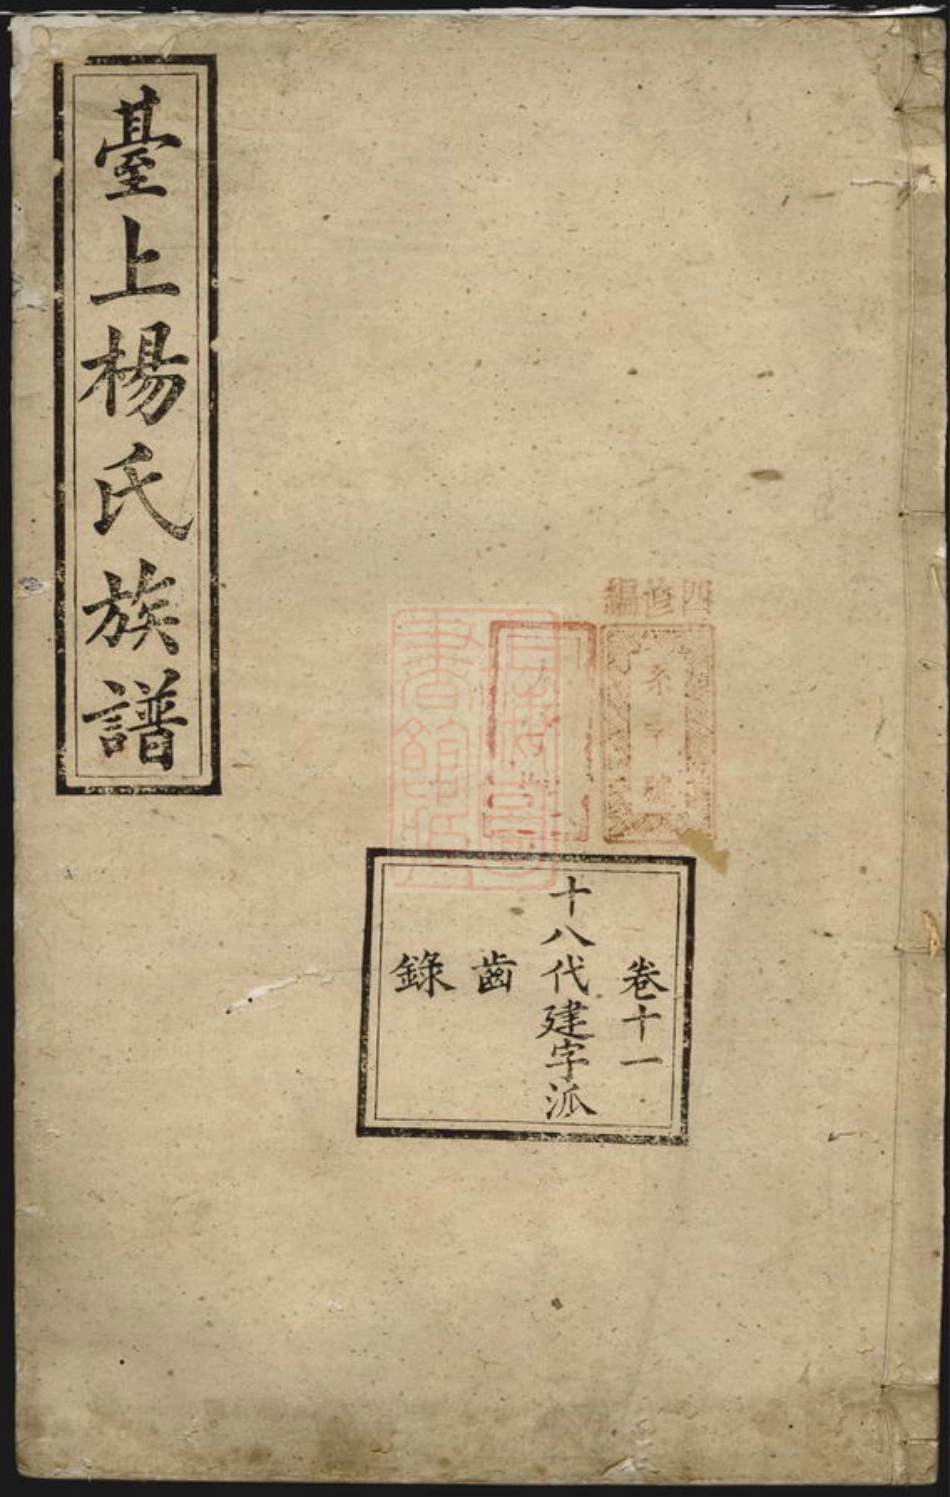 臺上楊氏族譜
四修編
卷十一
十八代建字派
齒
錄